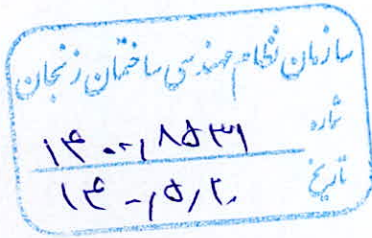 سازمان نظام مهندسی ساختمان زنجان
شماره ۱۴۰۰/۸۵۳۱
تاریخ ۱۴۰۰/۵/۲۰